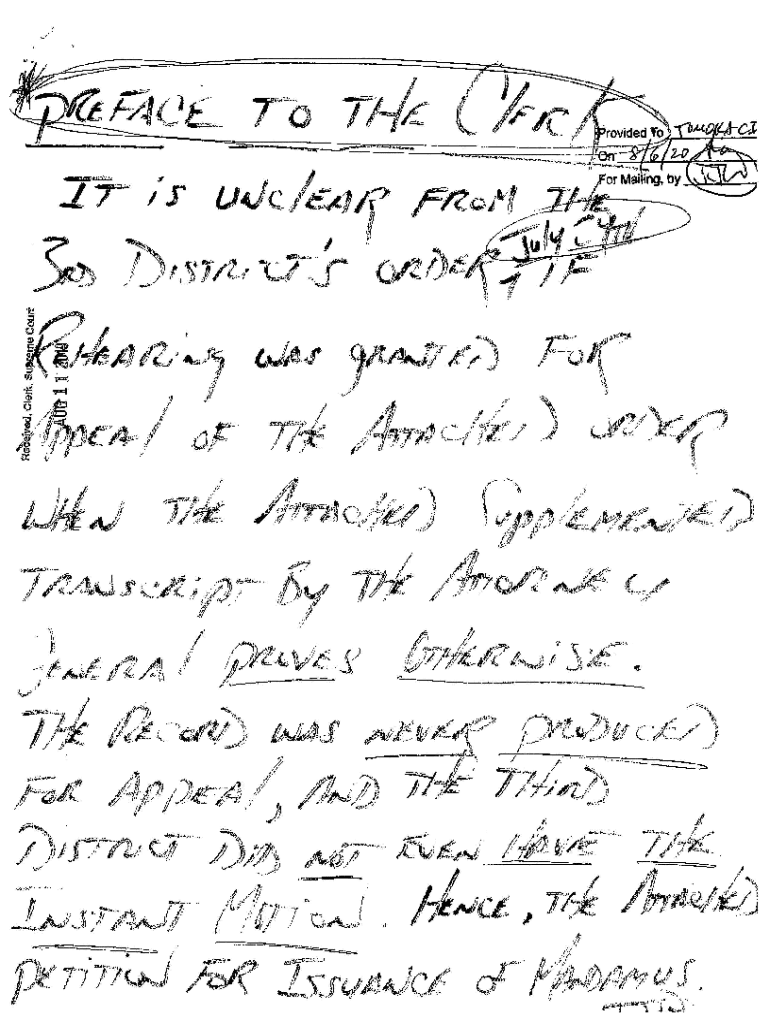 PREFACE TO THE CLERK
Provided To TOMOKA CI
On 8/6/20
For Mailing, by
IT IS UNCLEAR FROM THE
July
3RD DISTRICT'S ORDER, IF
REHEARING WAS GRANTED FOR
APPEAL OF THE ATTACHED ORDER
WHEN THE ATTACHED SUPPLEMENTED
TRANSCRIPT BY THE ATTORNEY
GENERAL PROVES OTHERWISE.
THE RECORD WAS NEVER PRODUCED
FOR APPEAL, AND THE THIRD
DISTRICT DID NOT EVEN HAVE THE
INSTANT MOTION. HENCE, THE ATTACHED
PETITION FOR ISSUANCE OF MANDAMUS.
Received, Clerk, Supreme Court
AUG 11